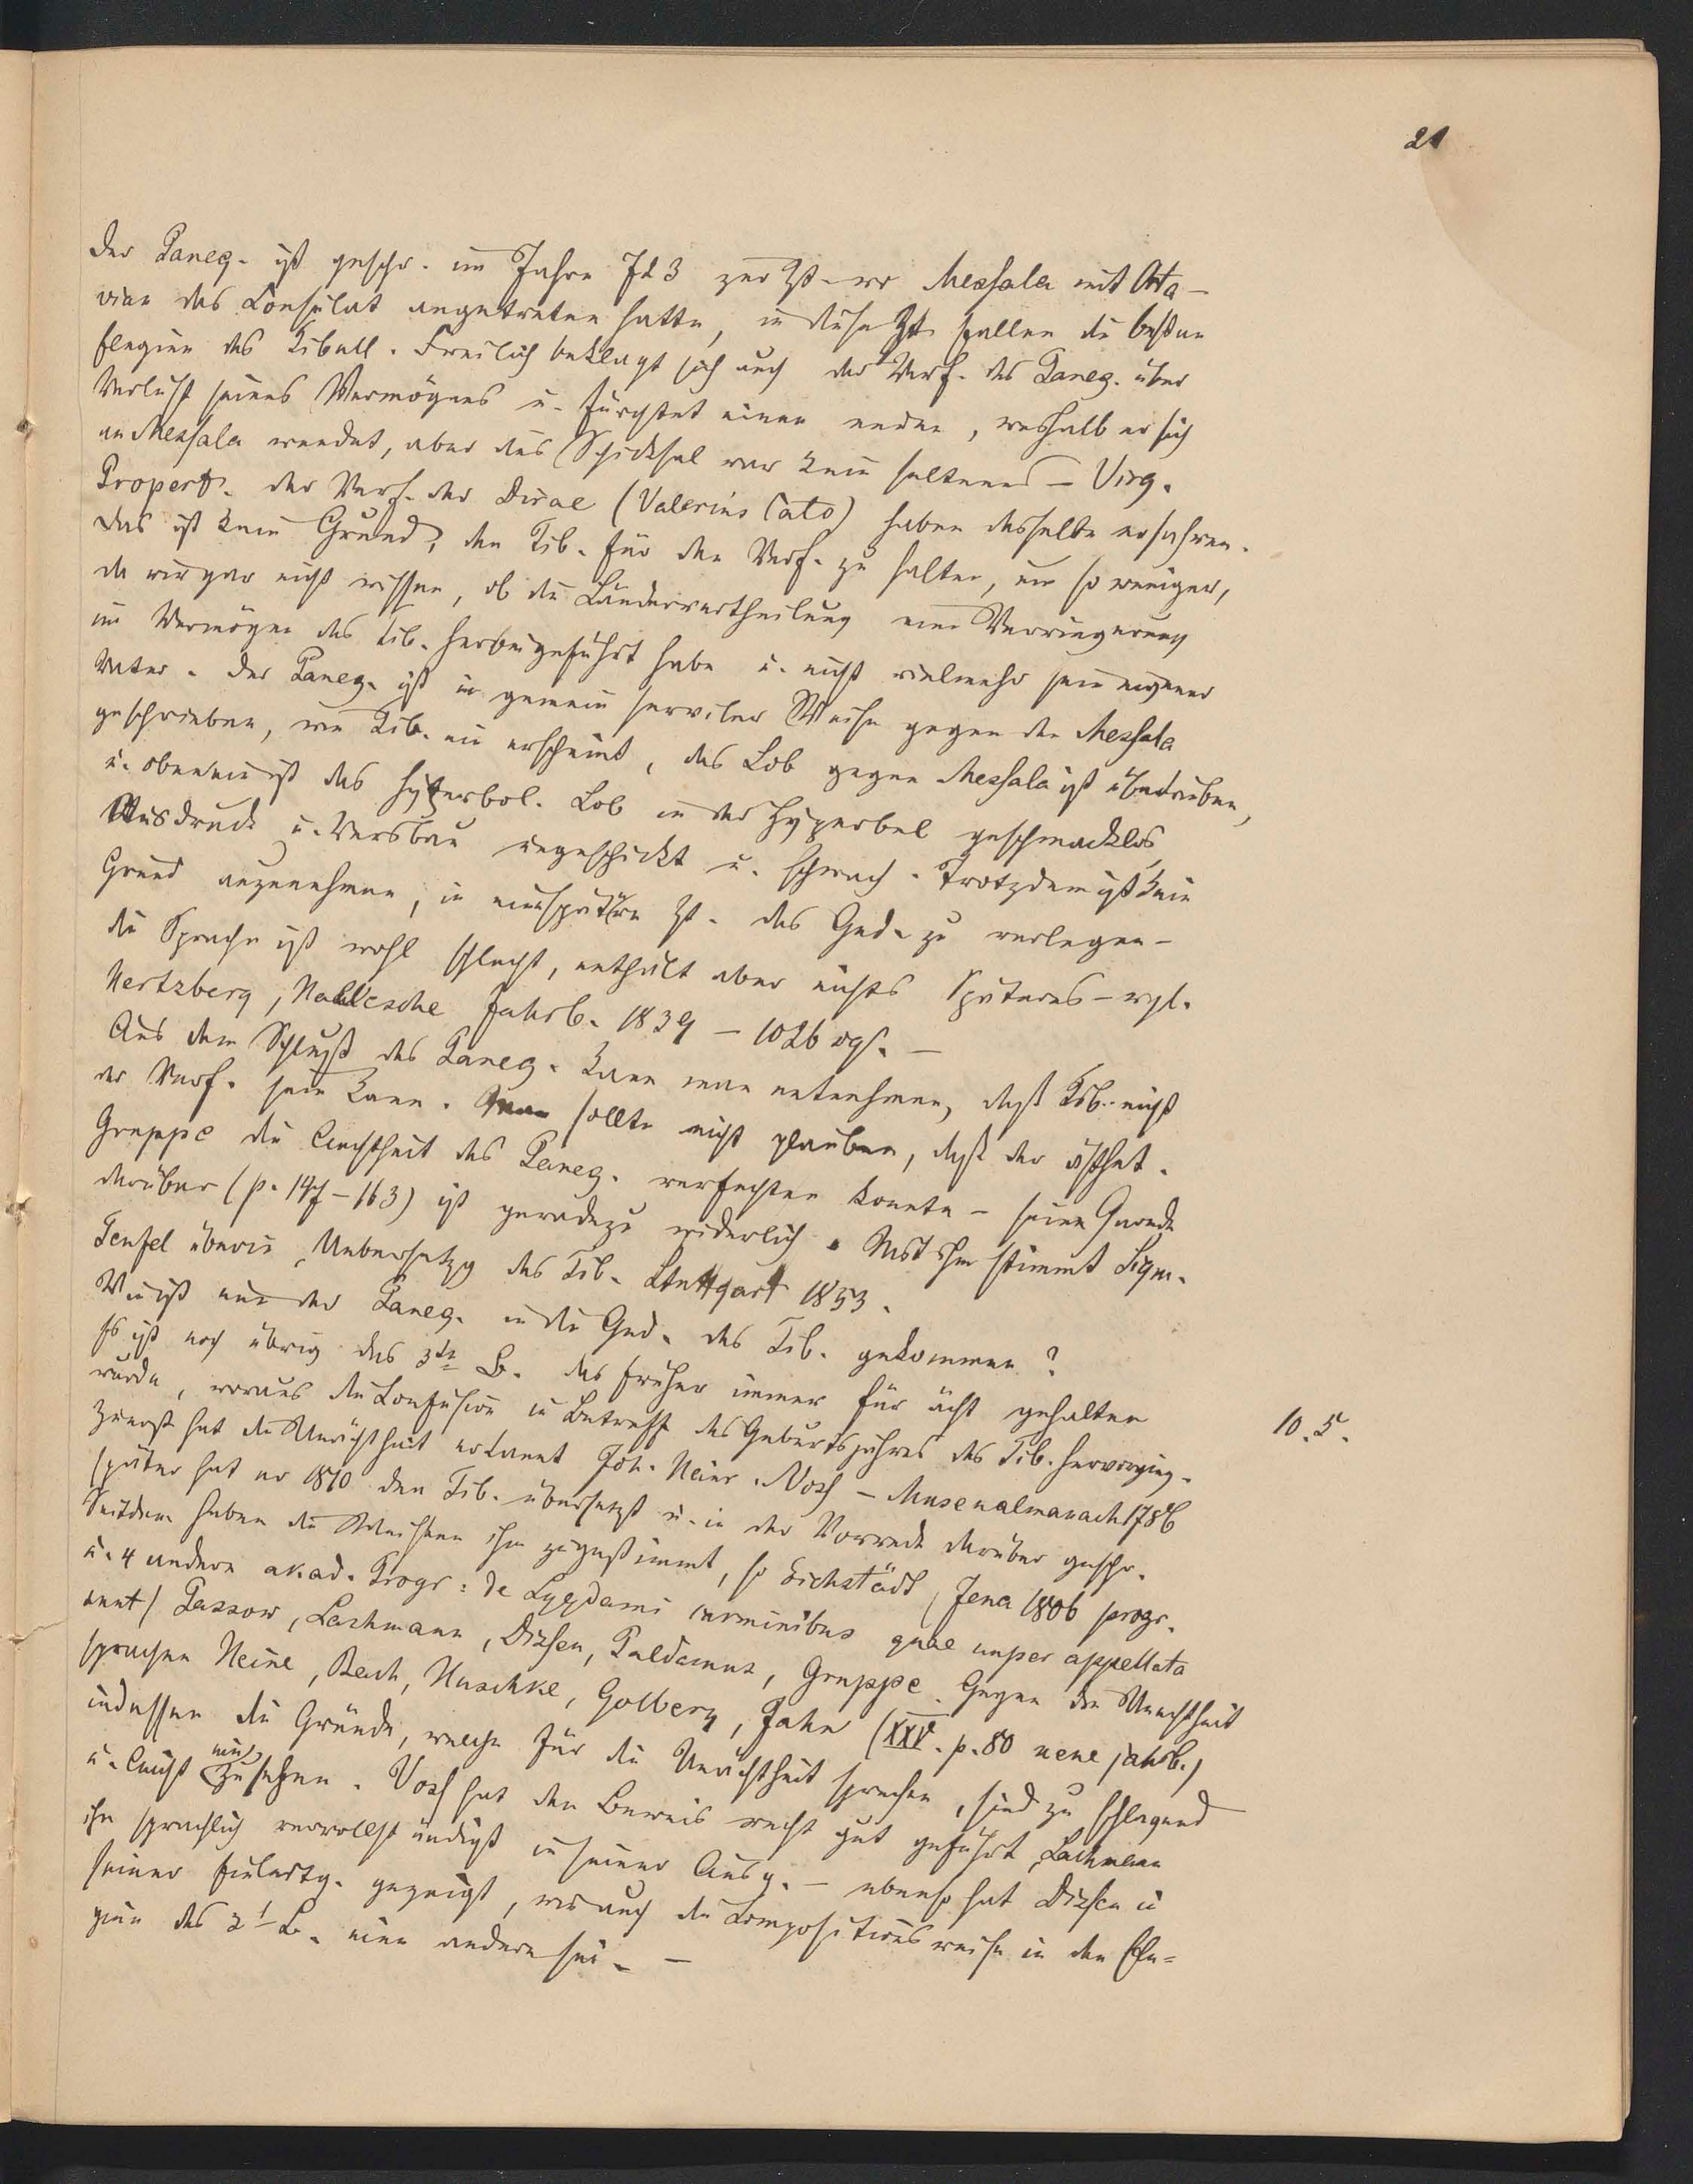 21
Der Paneg. ist geschr. im Jahre 723 zur Zt. wo Messala mit Octa-
vian das Consulat angetreten hatte, in diese Zt. fallen die besten
Elegien des Tibull. Freilich beklagt sich auch der Verf. des Paneg. über
Verlust seines Vermögens u. fürchtet einen andren, weshalb er sich
an Messala wendet, aber das Schicksal war kein seltenes – Virg.
Propert. der Verf. der Dirae (Valerius Cato) haben dasselbe erfahren.
das ist kein Grund, den Tib. für den Verf. zu halten, um so weniger,
da wir gar nicht wissen, ob die Ländervertheilung eine Verringerung
im Vermögen des Tib. herbeigeführt habe u. nicht vielmehr sein eigener
Vater. Der Paneg. ist in gemein serviler Weise gegen den Messala
geschrieben, wie Tib. nie erscheint, das Lob gegen Messala ist übertrieben,
u. obenein ist das hyperbol. Lob in der Hyperbel geschmacklos,
Ausdruck u. Versbau ungeschickt u. schwach. Trotzdem ist kein
Grund anzunehmen, in eine spätere Zt. das Ged. zu verlegen –
die Sprache ist wohl schlecht, enthält aber nichts Späteres – vgl.
Hertzberg, Hallesche Jahrb. 1839 – 1026 sqs. –
Aus dem Schluß des Paneg. kann man entnehmen, daß Tib. nicht
der Verf. sein kann. Man sollte nicht glauben, daß der ästhet.
Gruppe die Aechtheit des Paneg. verfechten konnte – seine Gerede
darüber (p. 147–163) ist geradezu widerlich. Mit ihm stimmt Sigm.
Teufel überein, Uebersetzg des Tib. Stuttgart 1853.
Wie ist nun der Paneg. in die Ged. des Tib. gekommen?
Es ist noch übrig das 3te B. das früher immer für ächt gehalten
wurde, woraus die Confusion in Betreff des Geburtsjahres des Tib. hervorging.
10. 5.
Zuerst hat die Unächtheit erkannt Joh. Heinr. Voss – Musenalmanach 1786
später hat er 1810 den Tib. übersetzt u. in der Vorrede darüber geschr.
Seitdem haben die Meisten ihm zugestimmt, so Eichstädt (Jena 1806 progr.
u. 4 andere akad. Progr: de Lygdami carminibus quae nuper appellata
sunt) Passow, Lachmann, Dissen, Paldamus, Gruppe. Gegen die Unechtheit
sprachen Heine, Bach, Huschke, Golbery, Jahn (XXV. p. 80 neue jahrb.)
indessen die Gründe, welche für die Unächtheit sprechen, sind zu schlagend
u. leicht einzusehen. Voss hat den Beweis recht gut geführt, Lachmann
ihn sprachlich vervollständigt in seiner Ausg. – ebenso hat Dissen in
seiner Einleitg. gezeigt, wie auch die Compositionsweise in den Ele=
gien des 3t B. eine andere sei. –